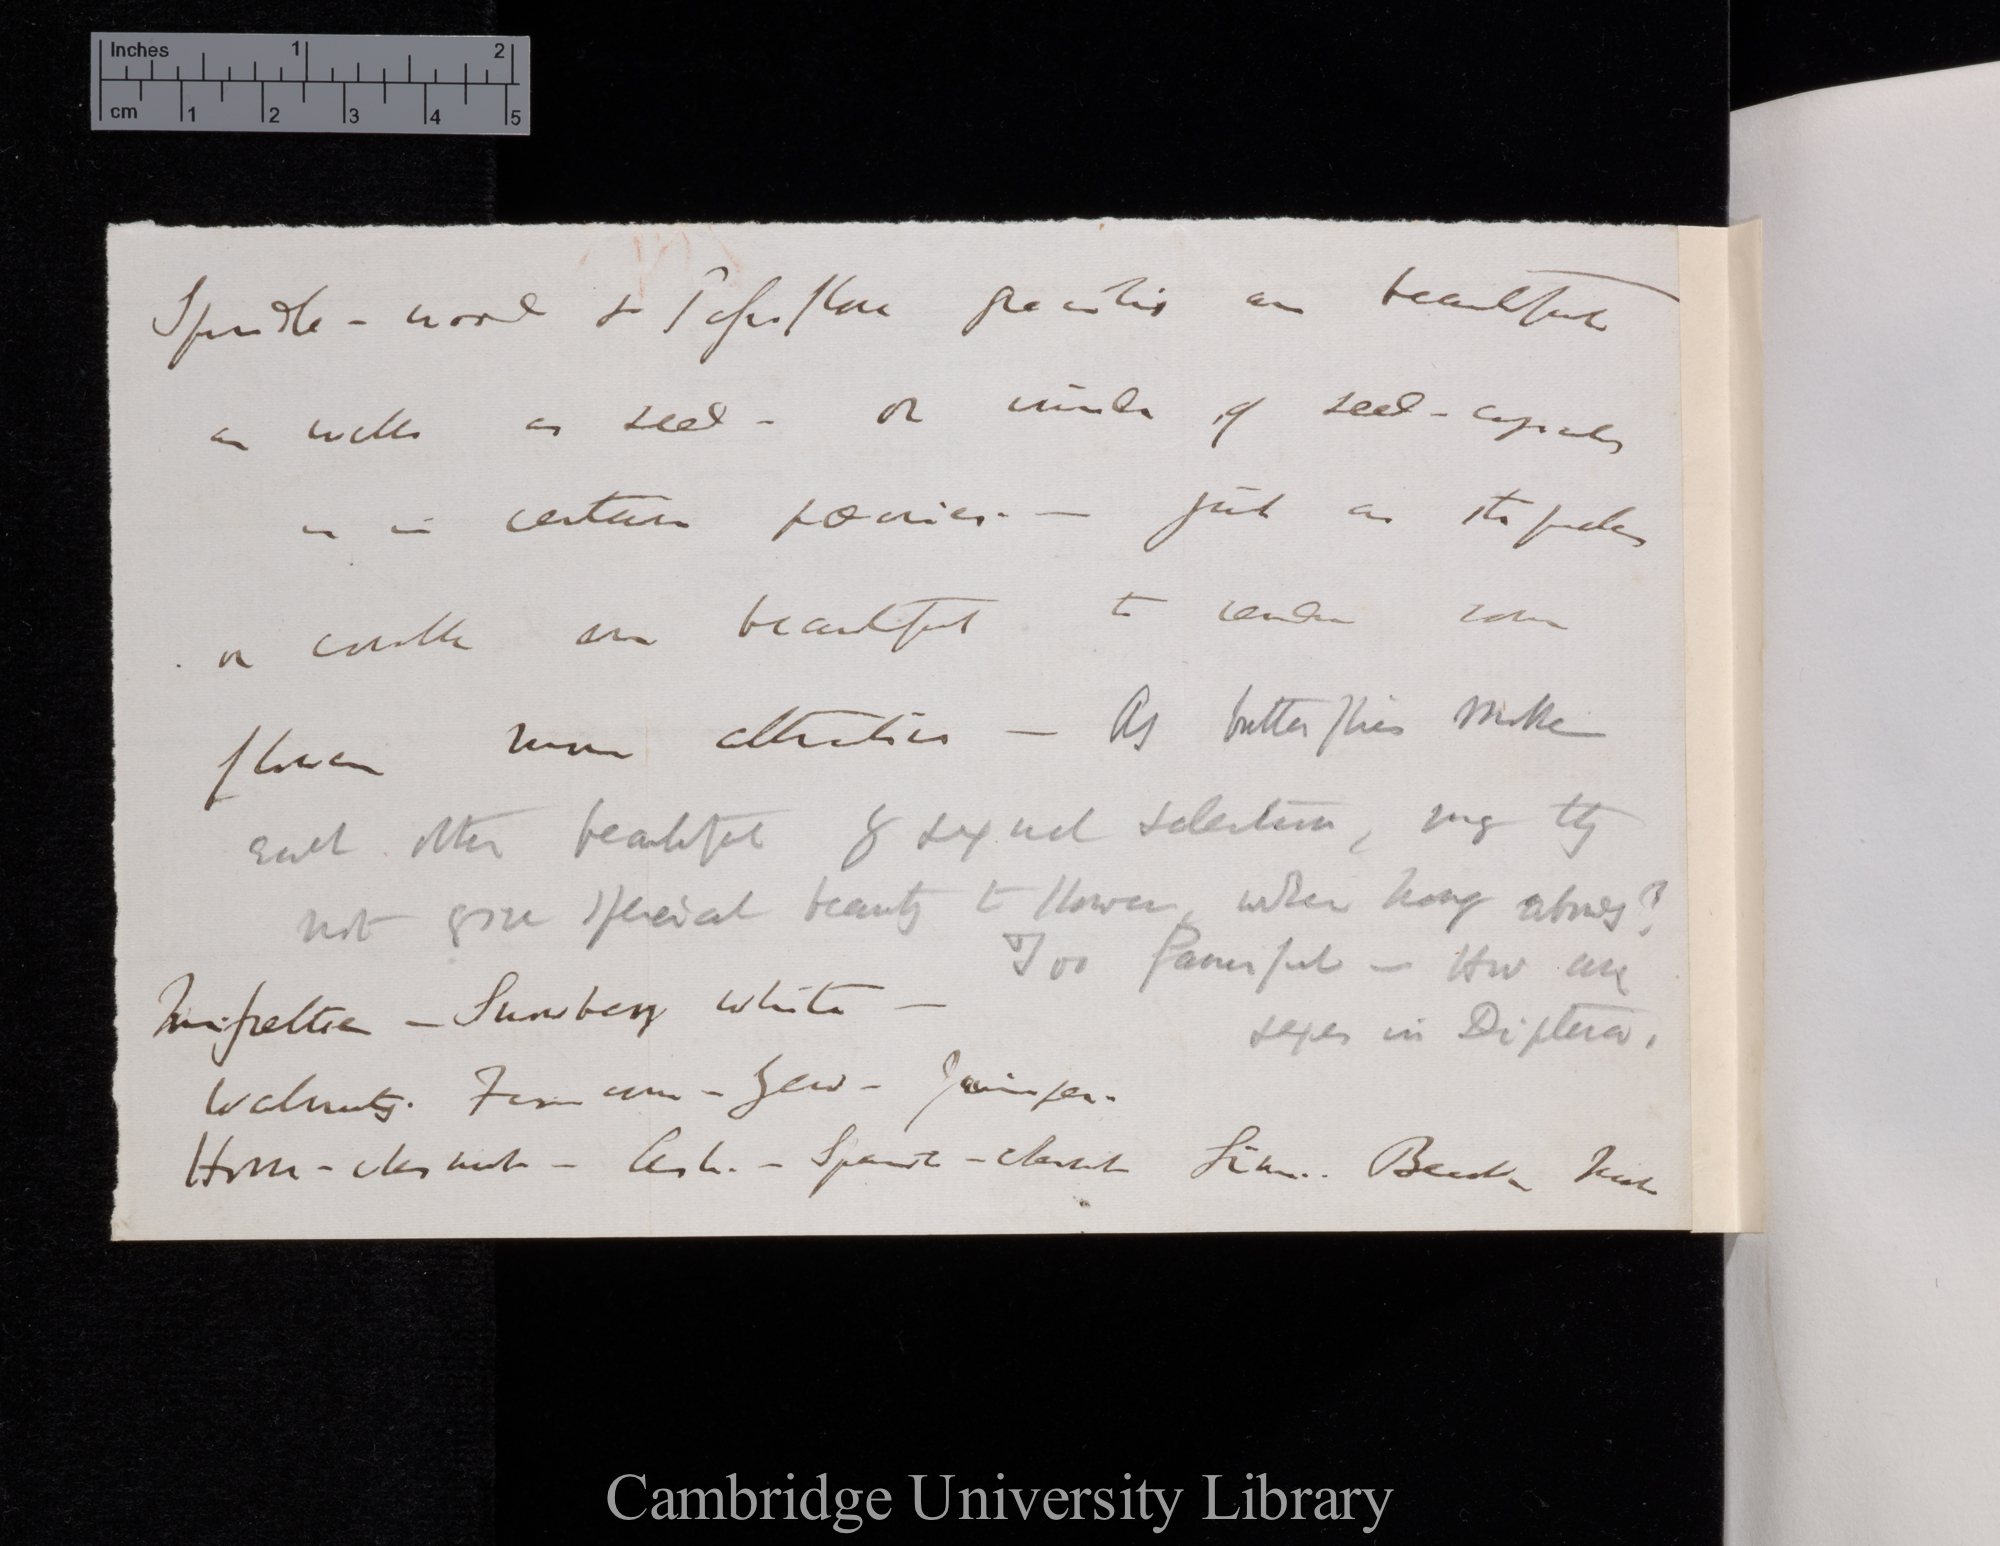 Inches 1 2
cm 1 2 3 4 5
Spindle-wood & Passiflora gracilis are beautiful
as well as seed - or inside of seed-capsules
as in certain pœonies. — just as its petals
or corolla are beautiful to render some
flowers more attractive — As butterflies make
each other beautiful by sexual selection, may they
not give special beauty to flowers, when
Too Powerful — How are
sexes in Diptera.
Misseltoe — Snowberry white —
Walnuts. Fir cone - Yew - Juniper.
Horse-chesnut - Ash. - Spanish-chesnut Beech
Cambridge University Library